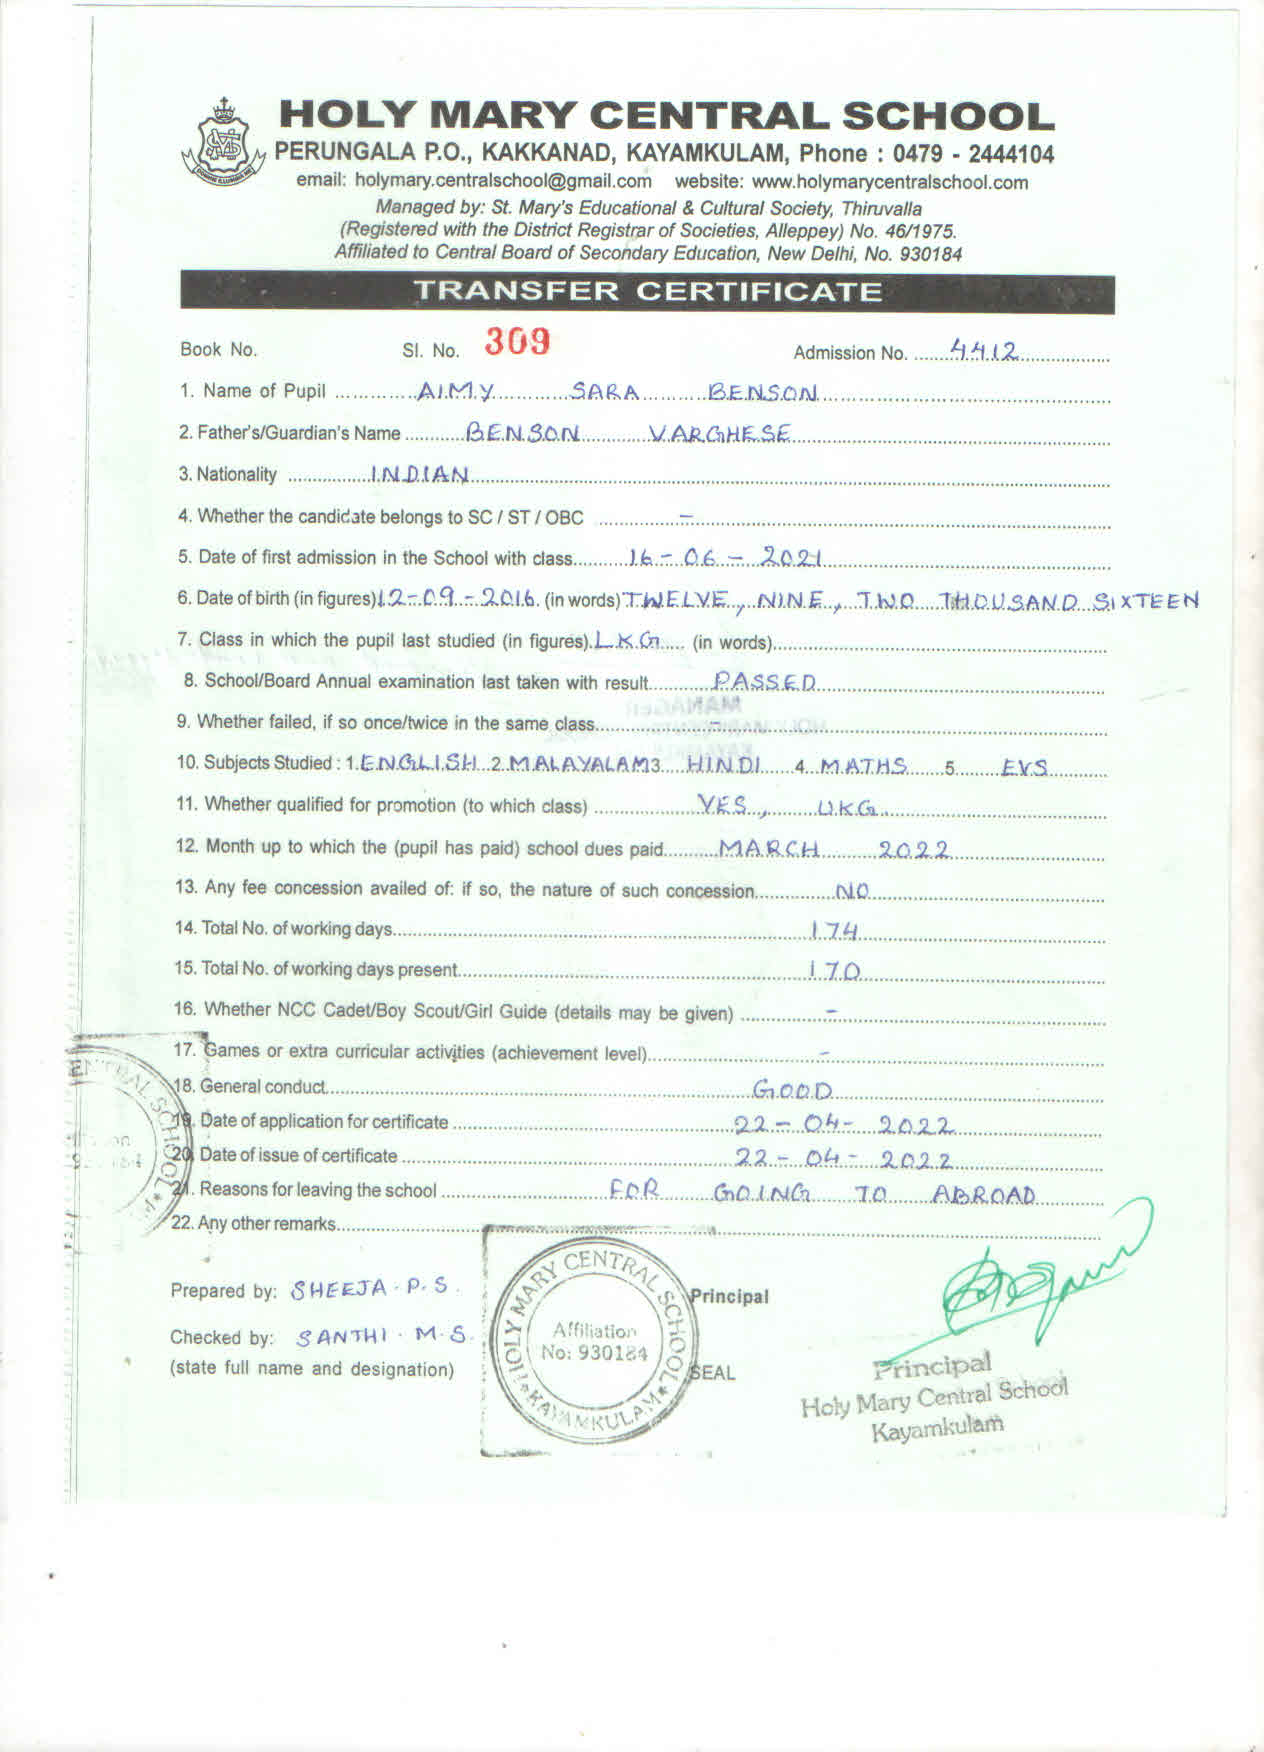 HOLY MARY CENTRAL SCHOOL
PERUNGALA P.O., KAKKANAD, KAYAMKULAM, Phone : 0479 - 2444104
email: holymary.centralschool@gmail.com website: www.holymarycentralschool.com
Managed by: St. Mary's Educational & Cultural Society, Thiruvalla
(Registered with the District Registrar of Societies, Alleppey) No. 46/1975.
Affiliated to Central Board of Secondary Education, New Delhi, No. 930184
TRANSFER CERTIFICATE
Book No. Sl. No. 309 Admission No. 4412
1. Name of Pupil AIMY SARA BENSON
2. Father's/Guardian's Name BENSON VARGHESE
3. Nationality INDIAN
4. Whether the candidate belongs to SC / ST / OBC -
5. Date of first admission in the School with class 16-06-2021
6. Date of birth (in figures) 12-09-2016. (in words) TWELVE, NINE, TWO THOUSAND SIXTEEN
7. Class in which the pupil last studied (in figures) LKG (in words)
8. School/Board Annual examination last taken with result PASSED
9. Whether failed, if so once/twice in the same class -
10. Subjects Studied : 1. ENGLISH 2. MALAYALAM 3. HINDI 4. MATHS 5. EVS
11. Whether qualified for promotion (to which class) YES, UKG
12. Month up to which the (pupil has paid) school dues paid MARCH 2022
13. Any fee concession availed of: if so, the nature of such concession NO
14. Total No. of working days 174
15. Total No. of working days present 170
16. Whether NCC Cadet/Boy Scout/Girl Guide (details may be given) -
17. Games or extra curricular activities (achievement level) -
18. General conduct GOOD
19. Date of application for certificate 22-04-2022
20. Date of issue of certificate 22-04-2022
21. Reasons for leaving the school FOR GOING TO ABROAD
22. Any other remarks
Prepared by: SHEEJA. P. S.
Checked by: SANTHI. M. S.
(state full name and designation)
HOLY MARY CENTRAL SCHOOL
Affiliation
No: 930184
★ KAYAMKULAM ★
Principal
SEAL
Principal
Holy Mary Central School
Kayamkulam